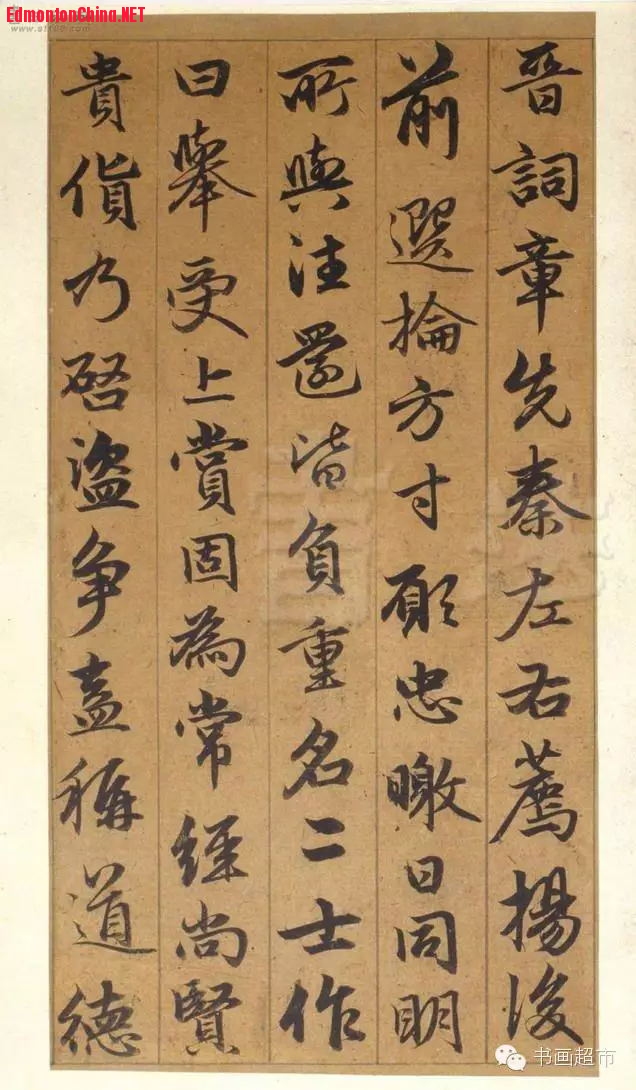 EdmontonChina.NET
晉詞章先秦左右薦揚後
前選掄方寸願忠暾日同明
所與注罢皆負重名二士作
曰舉受上賞固為常經尚賢
貴貨乃啓盜争盍稱道德
书画超市